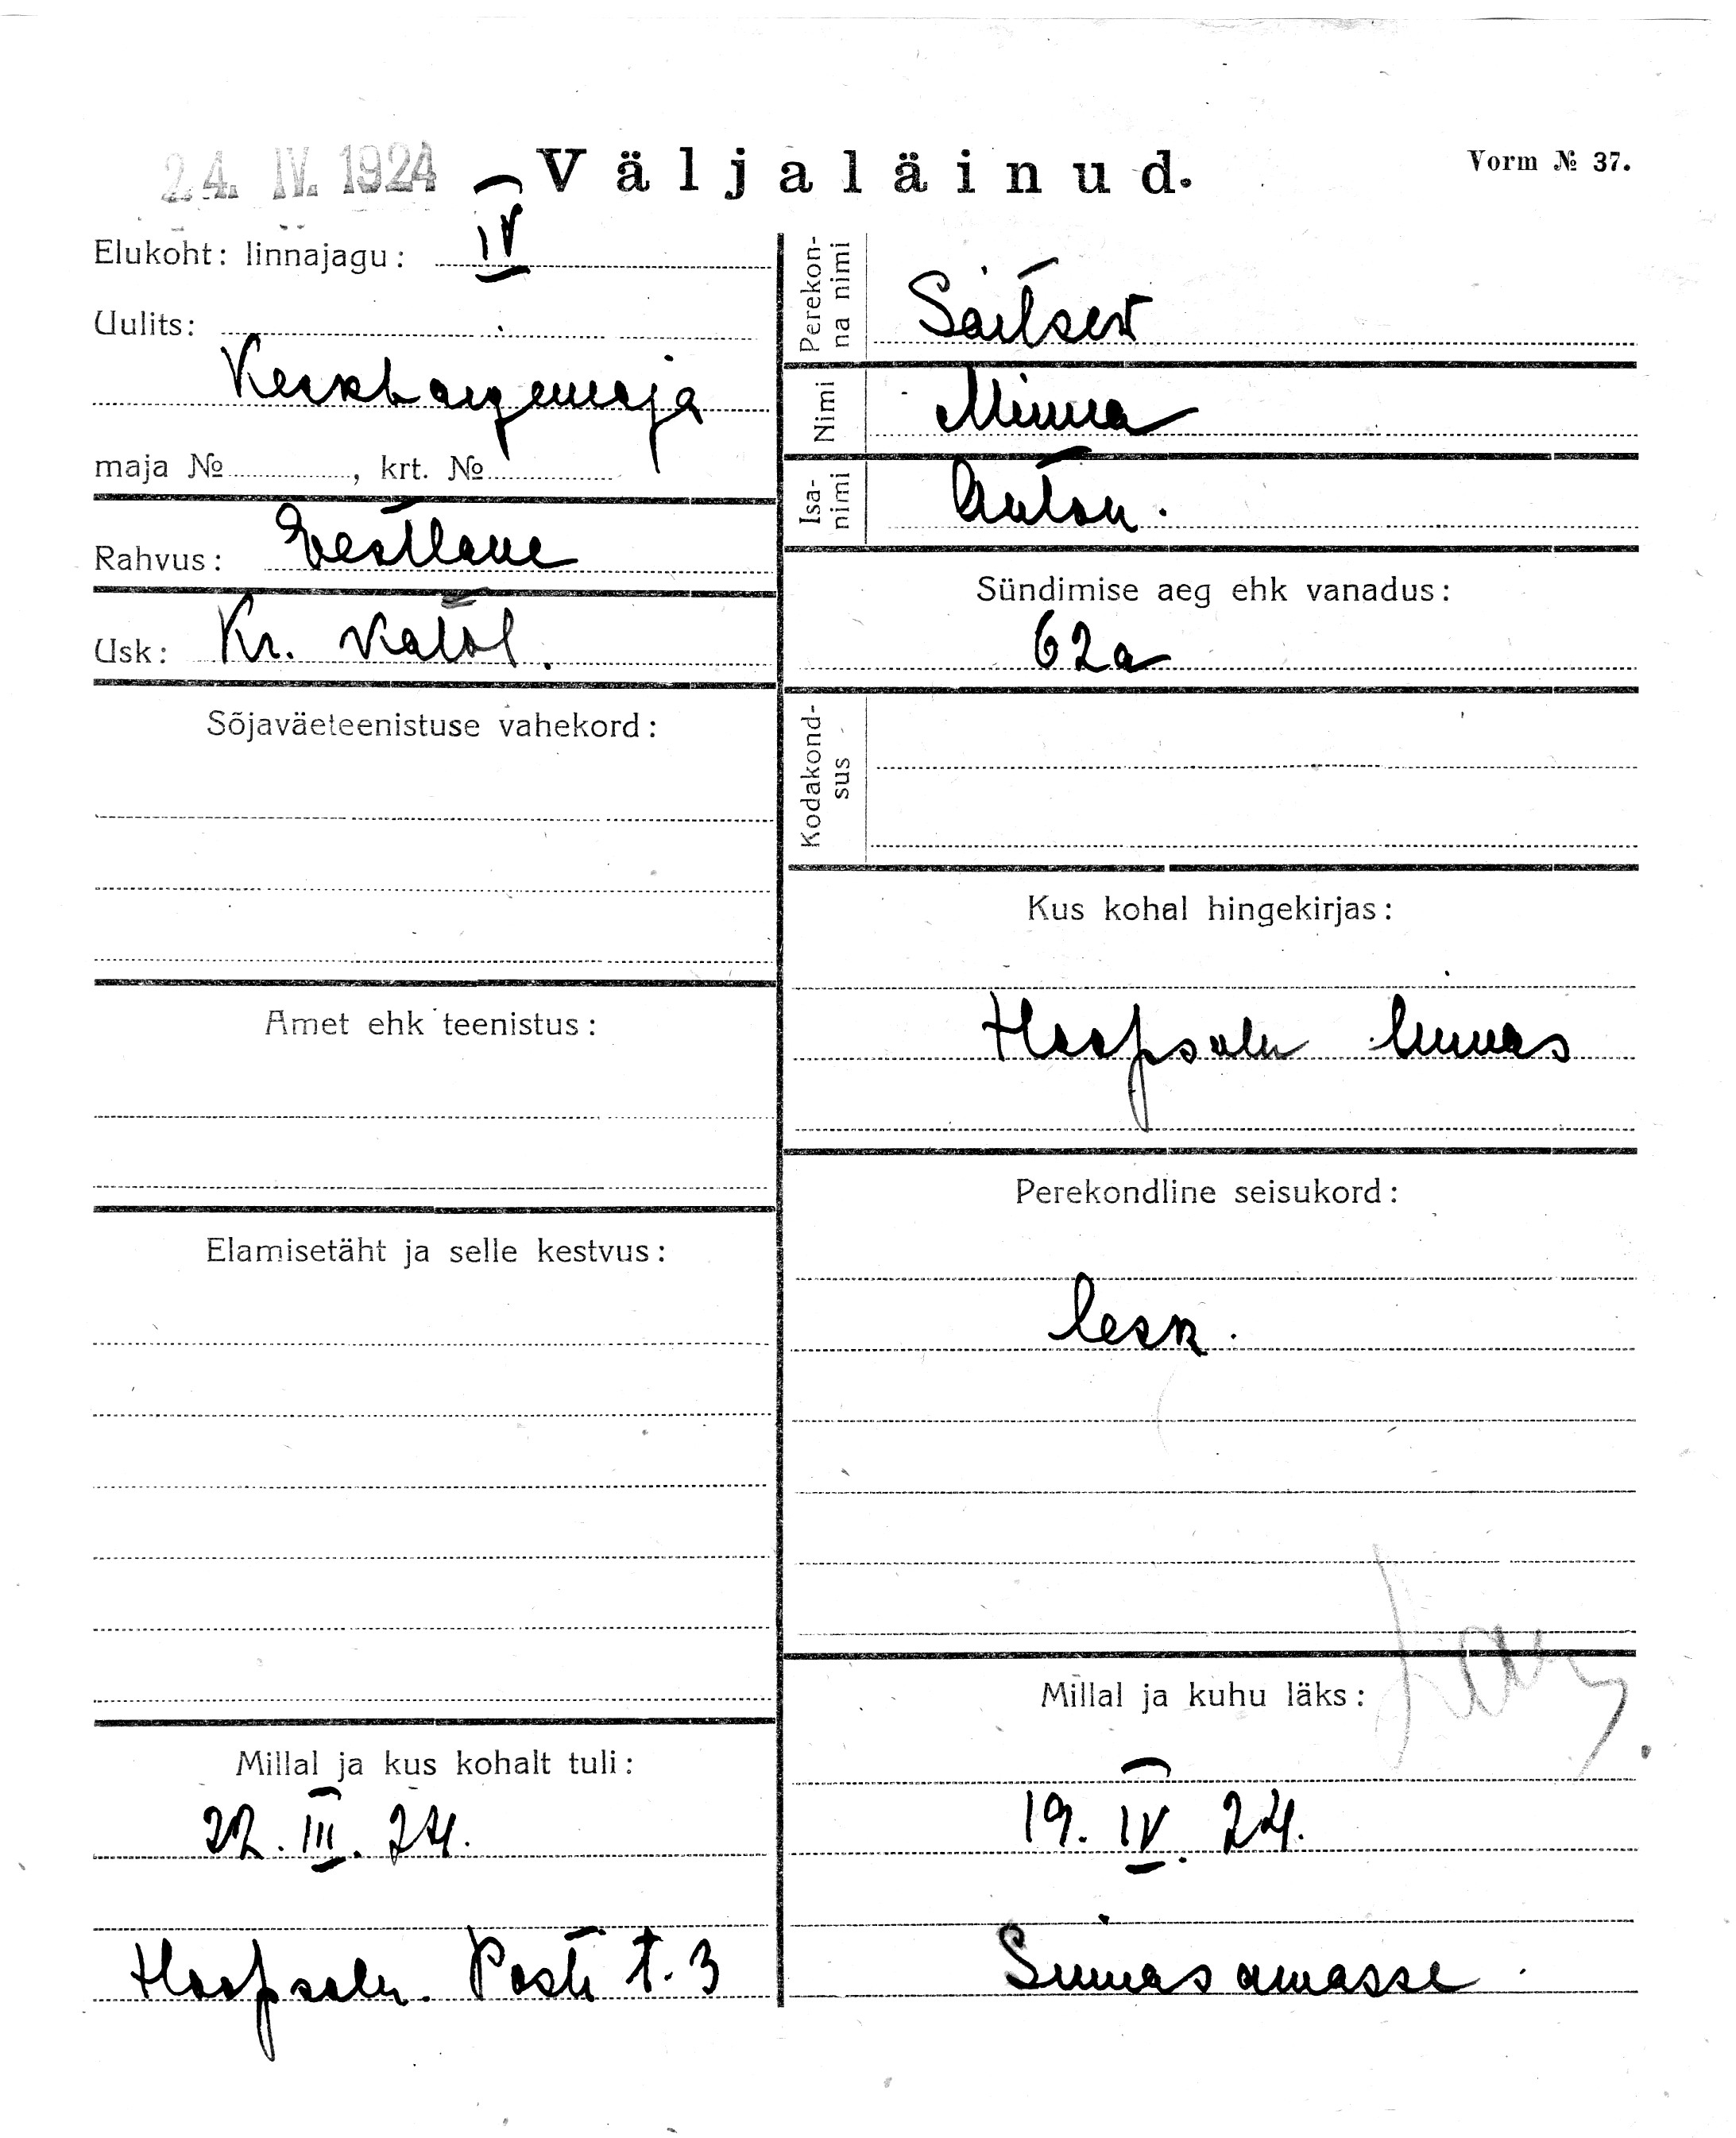 24. IV. 1924 Väljaläinud. Vorm № 37.
Elukoht: linnajagu: IV
Uulits:
Keskhaigemaja
maja № , krt. №
Rahvus: Eestlane
Usk: Kr. Katol.
Sõjaväeteenistuse vahekord:
Amet ehk teenistus:
Elamisetäht ja selle kestvus:
Millal ja kus kohalt tuli:
22. III. 24.
Haapsalu. Posti t. 3
Perekon-
na nimi
Saitsev
Nimi Minna
Isa-
nimi
Anton.
Sündimise aeg ehk vanadus:
62a
Kodakond-
sus
Kus kohal hingekirjas:
Haapsalu linnas
Perekondline seisukord:
lesk.
Millal ja kuhu läks:
19. IV. 24.
Sinnasamasse.